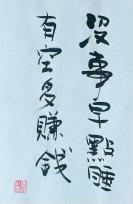 没事早點睡
有空多賺錢